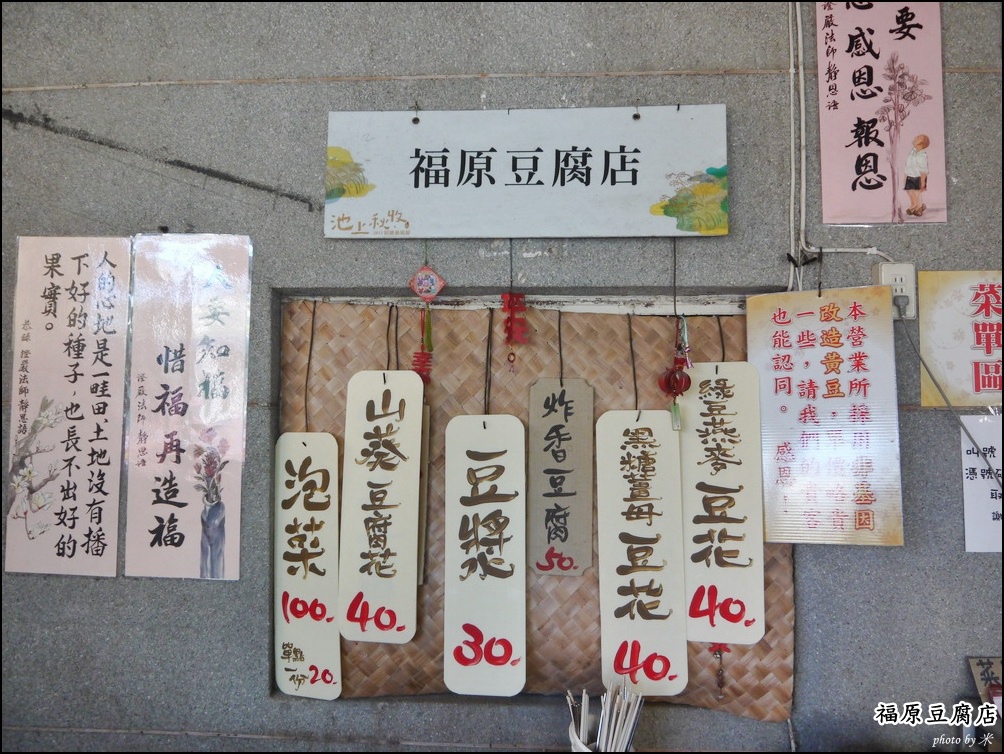 福原豆腐店
池上秋收
要
感恩 報恩
證嚴法師靜思語
人的心地是一畦田，土地沒有播
下好的種子，也長不出好的
果實。
恭錄 證嚴法師靜思語
知福
惜福
再造福
證嚴法師靜思語
泡菜
100.
單點一份20.
山葵豆腐花
40.
豆漿
30.
炸香豆腐
50.
黑糖薑母豆花
40.
綠豆燕麥豆花
40.
平安
本營業所採用非基因
改造黃豆，單價略貴
一些，請我們的顧客
也能認同。
感恩！
菜單區
叫號
憑號
取
謝
菜
福原豆腐店
photo by 米